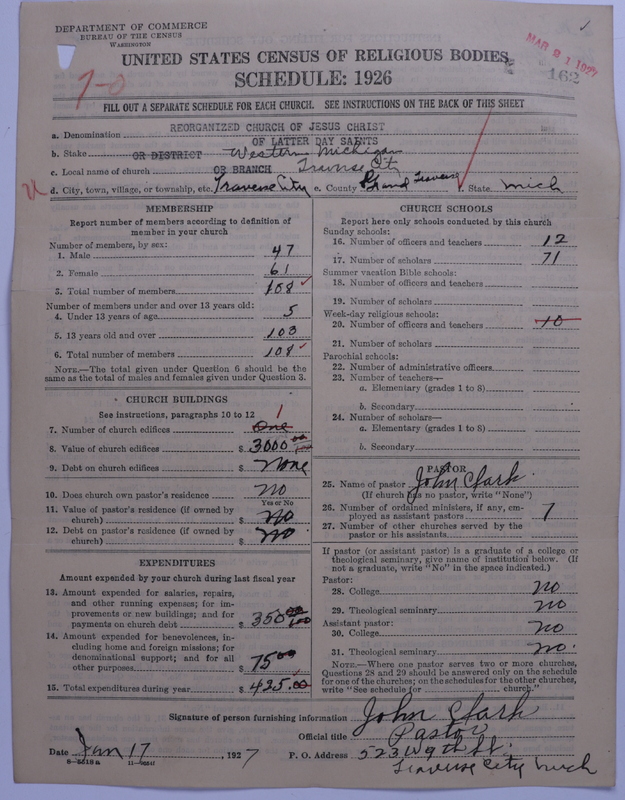 DEPARTMENT OF COMMERCE
BUREAU OF THE CENSUS
WASHINGTON
MAR 21 1927
162
UNITED STATES CENSUS OF RELIGIOUS BODIES
7-0
SCHEDULE: 1926
FILL OUT A SEPARATE SCHEDULE FOR EACH CHURCH. SEE INSTRUCTIONS ON THE BACK OF THIS SHEET
REORGANIZED CHURCH OF JESUS CHRIST
a. Denomination OF LATTER DAY SAINTS
b. Stake OR DISTRICT Western Michigan
c. Local name of church OR BRANCH Traverse City
d. City, town, village, or township, etc. Traverse City e. County Grand Traverse f. State Mich
MEMBERSHIP
Report number of members according to definition of
member in your church
Number of members, by sex:
1. Male 47
2. Female 61
3. Total number of members 108
Number of members under and over 13 years old:
4. Under 13 years of age 5
5. 13 years old and over 103
6. Total number of members 108
NOTE.—The total given under Question 6 should be the
same as the total of males and females given under Question 3.
CHURCH BUILDINGS
See instructions, paragraphs 10 to 12 1
7. Number of church edifices One
8. Value of church edifices $ 3000 00
9. Debt on church edifices $ None
10. Does church own pastor's residence No
Yes or No
11. Value of pastor's residence (if owned by
church) $ No
12. Debt on pastor's residence (if owned by
church) $ No
EXPENDITURES
Amount expended by your church during last fiscal year
13. Amount expended for salaries, repairs,
and other running expenses; for im-
provements or new buildings; and for
payments on church debt $ 350 00
14. Amount expended for benevolences, in-
cluding home and foreign missions; for
denominational support; and for all
other purposes $ 75 00
15. Total expenditures during year $ 425.00
CHURCH SCHOOLS
Report here only schools conducted by this church
Sunday schools:
16. Number of officers and teachers 12
17. Number of scholars 71
Summer vacation Bible schools:
18. Number of officers and teachers
19. Number of scholars
Week-day religious schools:
20. Number of officers and teachers 10
21. Number of scholars
Parochial schools:
22. Number of administrative officers
23. Number of teachers—
a. Elementary (grades 1 to 8)
b. Secondary
24. Number of scholars—
a. Elementary (grades 1 to 8)
b. Secondary
PASTOR
25. Name of pastor John Clark.
(If church has no pastor, write "None")
26. Number of ordained ministers, if any, em-
ployed as assistant pastors 7
27. Number of other churches served by the
pastor or his assistants
If pastor (or assistant pastor) is a graduate of a college or
theological seminary, give name of institution below. (If
not a graduate, write "No" in the space indicated.)
Pastor:
28. College No
29. Theological seminary No
Assistant pastor:
30. College No
31. Theological seminary No.
NOTE.—Where one pastor serves two or more churches,
Questions 28 and 29 should be answered only on the schedule
for one of the churches; on the schedules for the other churches,
write "See schedule for church."
Signature of person furnishing information John Clark
Official title Pastor
Date Jan 17, 1927 P. O. Address 523 W 9th St.
8-5518a Traverse City Mich